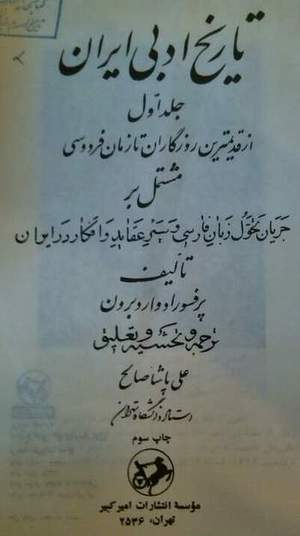 تاریخ ادبی ایران
جلد اول
از قدیمترین روزگاران تا زمان فردوسی
مشتمل بر
جریان تحوّل زبان فارسی و سیر عقاید و افکار در ایران
تألیف
پرفسور ادوارد برون
ترجمه و تحشیه و تعلیق
علی پاشا صالح
استاد دانشگاه طهران
چاپ سوم
مؤسسهٔ انتشارات امیرکبیر
تهران، ۲۵۳۶